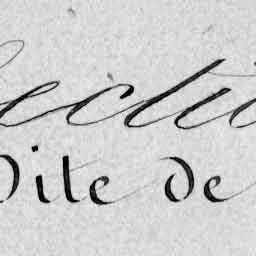 Secti
Dite de